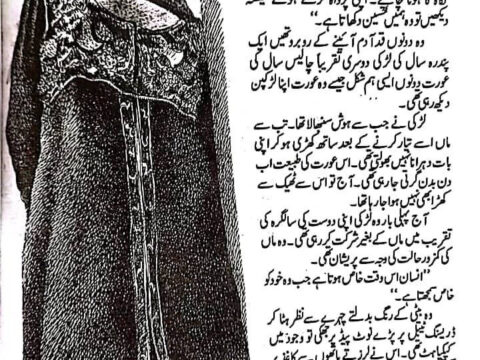 دیکھیں تو وہ ہمیں حسین دکھاتا ہے۔“
وہ دونوں قد آدم آئینے کے روبرو تھیں ایک
پندرہ سال کی لڑکی دوسری تقریباً چالیس سال کی
عورت دونوں ایسی ہم شکل جیسے وہ عورت اپنا لڑکپن
دیکھ رہی تھی۔
لڑکی نے جب سے ہوش سنبھالا تھا۔ تب سے
ماں اسے تیار کرنے کے بعد ساتھ کھڑی ہو کر اپنی
بات دہرانا نہیں بھولتی تھی۔ اس عورت کی طبیعت اب
دن بدن گرتی جا رہی تھی۔ آج تو اس سے ٹھیک سے
کھڑا بھی نہیں ہوا جا رہا تھا۔
آج پہلی بار وہ لڑکی اپنی دوست کی سالگرہ کی
تقریب میں ماں کے بغیر شرکت کر رہی تھی۔ وہ ماں
کی کمزور حالت کی وجہ سے پریشان تھی۔
”انسان اس وقت خاص ہوتا ہے جب وہ خود کو
خاص سمجھتا ہے۔“
وہ بیٹی کے رنگ بدلتے چہرے سے نظر ہٹا کر
ڈریسنگ ٹیبل پر پڑے نوٹ پیڈ پر جھکی تو وجود میں
کپکپاہٹ تھی۔ اس نے لرزتے ہاتھوں سے کاغذ پر